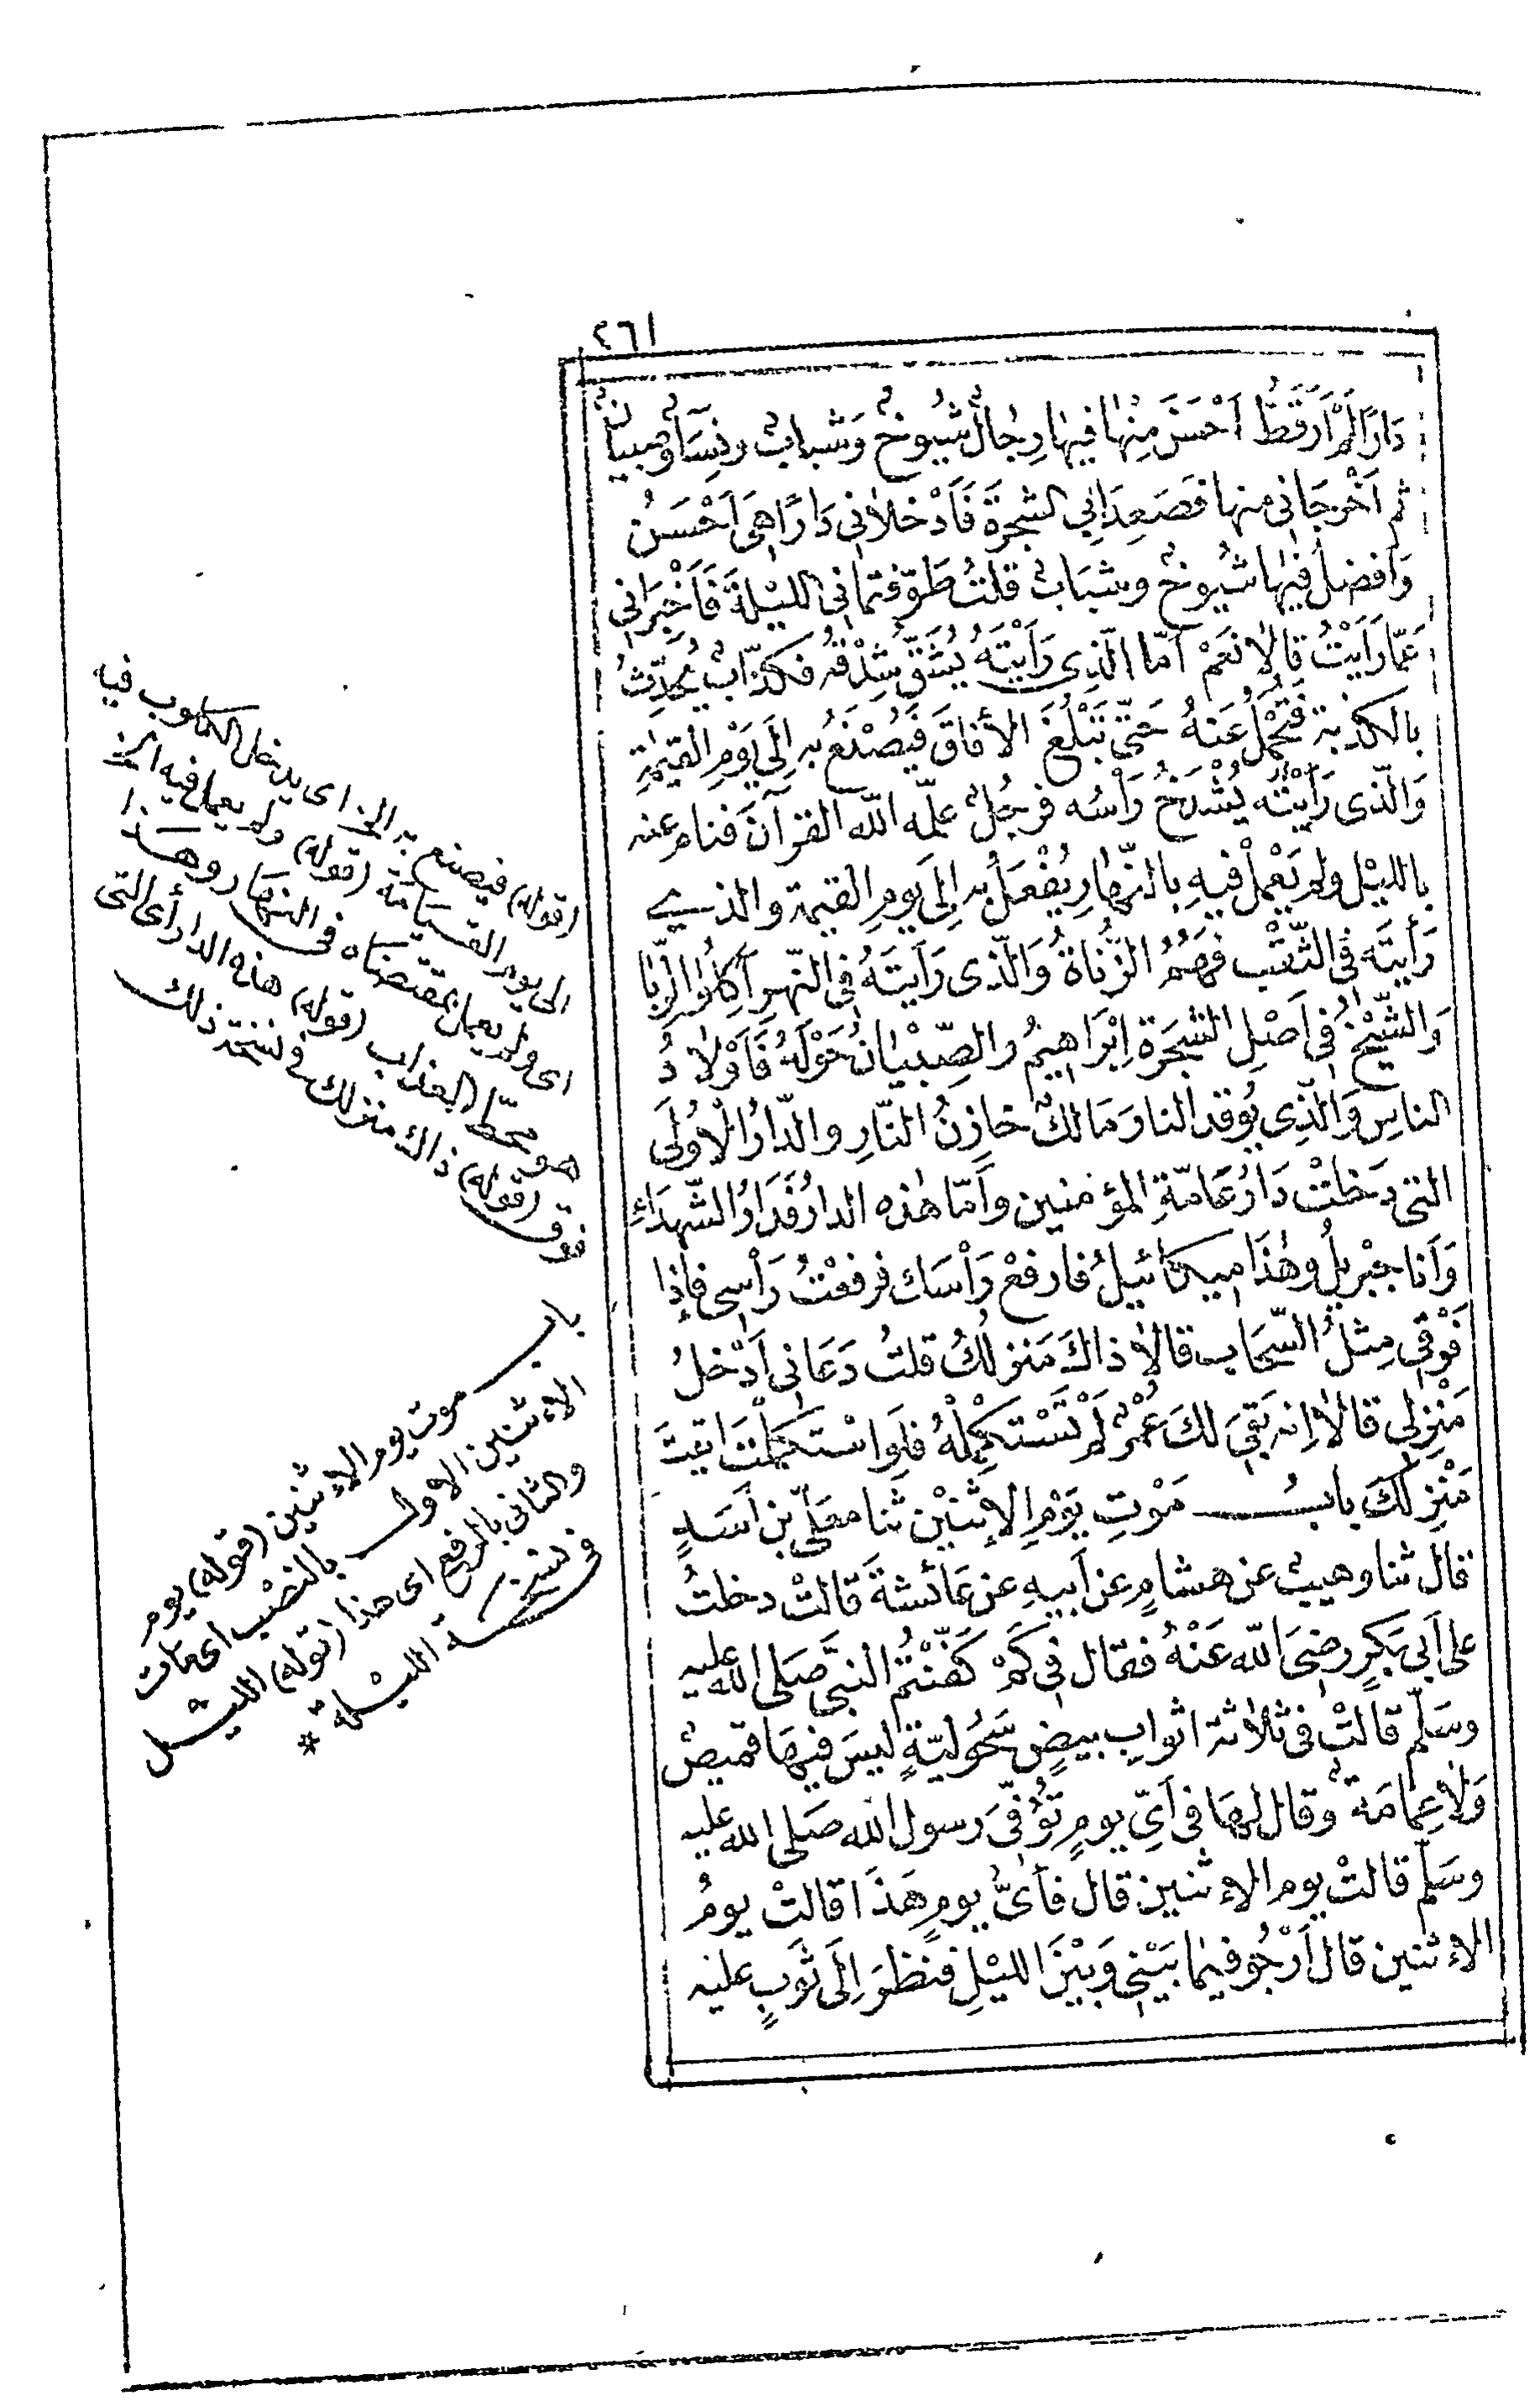 ٤٦١
دَارًا لَمْ أَرَ قَطُّ أَحْسَنَ مِنْهَا فِيهَا رِجَالٌ شُيُوخٌ وَشَبابٌ ونِسَاءٌ وصِبيانٌ
ثم أَخْرَجَانِى منها فَصَعِدَا بِي الشجرةَ فَأَدْخَلَانِى دَارًا هِىَ أَحْسَنُ
وَأفضلُ فِيهَا شُيُوخٌ وشَبَابٌ قلتُ طَوَّفْتمَانِى الليْلةَ فَأَخْبِرَانِى
عَمَّا رَأَيْتُ قالا نَعَمْ أمّا الّذِى رَأَيْتَهُ يُشَقُّ شِدْقُهُ فكذّابٌ يُحَدِّثُ
بالكذبة فَتُحْمَلُ عَنْهُ حَتَّى تَبْلُغَ الآفاقَ فَيُصْنَعُ به إِلَى يَوْمِ القيٰمَةِ
وَالّذى رَأَيْتَه يُشْدَخُ رَأْسُه فرجُلٌ علّمه اللّه القرآنَ فنام عنه
بالليْل ولم يَعْمَلْ فيهِ بالنَّهارِ يُفْعَلُ به إِلَى يومِ القيمة والذى
رَأَيتَه فى الثَّقْبِ فَهُمُ الزُّنَاةُ وَالّذى رَأَيتَهُ فِى النّهرِ آكِلُوا الرِّبَا
وَالشَّيْخُ فِى أَصْلِ الشجرةِ إِبْرَاهِيمُ والصِّبْيَانُ حَوْلَهُ فَأَوْلادُ
الناسِ وَالّذِى يُوقِد النار مَالكٌ خازِنُ النّارِ والدّارُ الأُولَى
التى دَخَلتْ دَارُ عَامّةِ المؤمنين وأَمّا هٰذه الدارُ فَدَارُ الشّهدَاءِ
وَأنا جبْرِيلُ وهٰذَا ميكائيلُ فارفعْ رَأْسَك فرفعْتُ رَأْسِى فإِذا
فَوْقِى مِثْلُ السَّحَابِ قالا ذاكَ مَنزلكَ قلتُ دَعَانِى أَدْخلُ
مَنْزِلى قالا إِنه بَقِىَ لكَ عُمْرٌ لَمْ تَسْتَكمِلْهُ فلو اسْتَكمَلْتَ أَتيتَ
مَنْزِلكَ بابُ مَوْتِ يَوْمِ الإِثنَيْن ثنا معَلّى بن أَسَدٍ
قال ثنا وهيبٌ عن هشامٍ عن أَبيهِ عن عَائشةَ قالتْ دخلتُ
على أَبى بَكرٍ رضىَ اللّه عَنْهُ فقال فِى كَمْ كَفَّنْتُمُ النبىَّ صَلى الله عليه
وسَلّم قالتْ فى ثلاثة اثوابٍ بيضٍ سَحُوليّةٍ ليسَ فيهَا قميصٌ
وَلا عِمَامَة وقال لهَا فى أَىِّ يومٍ تُوُفِّىَ رسول الله صَلى الله عليه
وسَلّم قالتْ يوم الإثنين قال فأىُّ يومٍ هَذَا قالتْ يومُ
الاثنين قال أَرْجُو فيما بَيْنِى وَبَيْنَ الليْلِ فنظَرَ إِلَى ثَوبٍ عليه
(قوله) فيصنع به الخ اى يدخل الكلوب فيه
الى يوم القيامة (قوله) ولم يعمل فيه الخ
اى ولم يعمل بمقتضاه فى النهار وهذا
هو محط العذاب (قوله) هذه الدار أى التى
فوق (قوله) ذاك منزلك فى نسخة ذلك
باب موت يوم الاثنين (قوله) يوم
الاثنين الاول بالنصب اى مات
والثانى بالرفع اى هذا (قوله) الليل
فى نسخة الليلة *